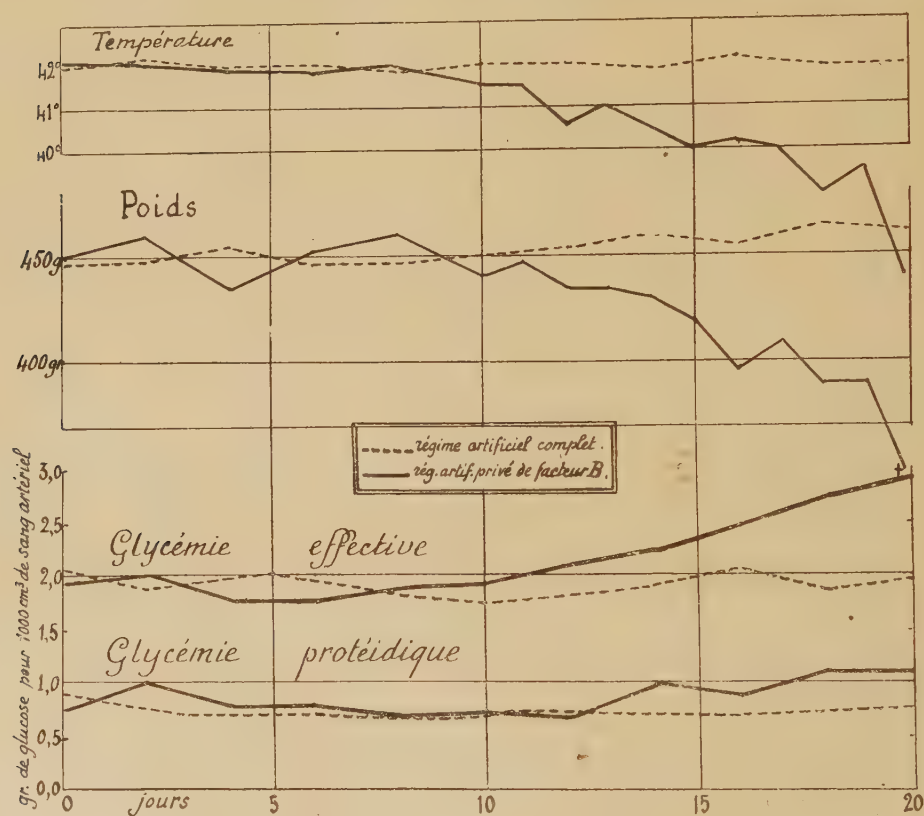 Température
42°
41°
40°
Poids
450gr
400gr
régime artificiel complet.
rég. artif. privé de facteur B.
gr. de glucose pour 1000 cm³ de sang artériel
3,0
2,5
2,0
1,5
1,0
0,5
0,0
Glycémie effective
Glycémie protéidique
0 jours 5 10 15 20